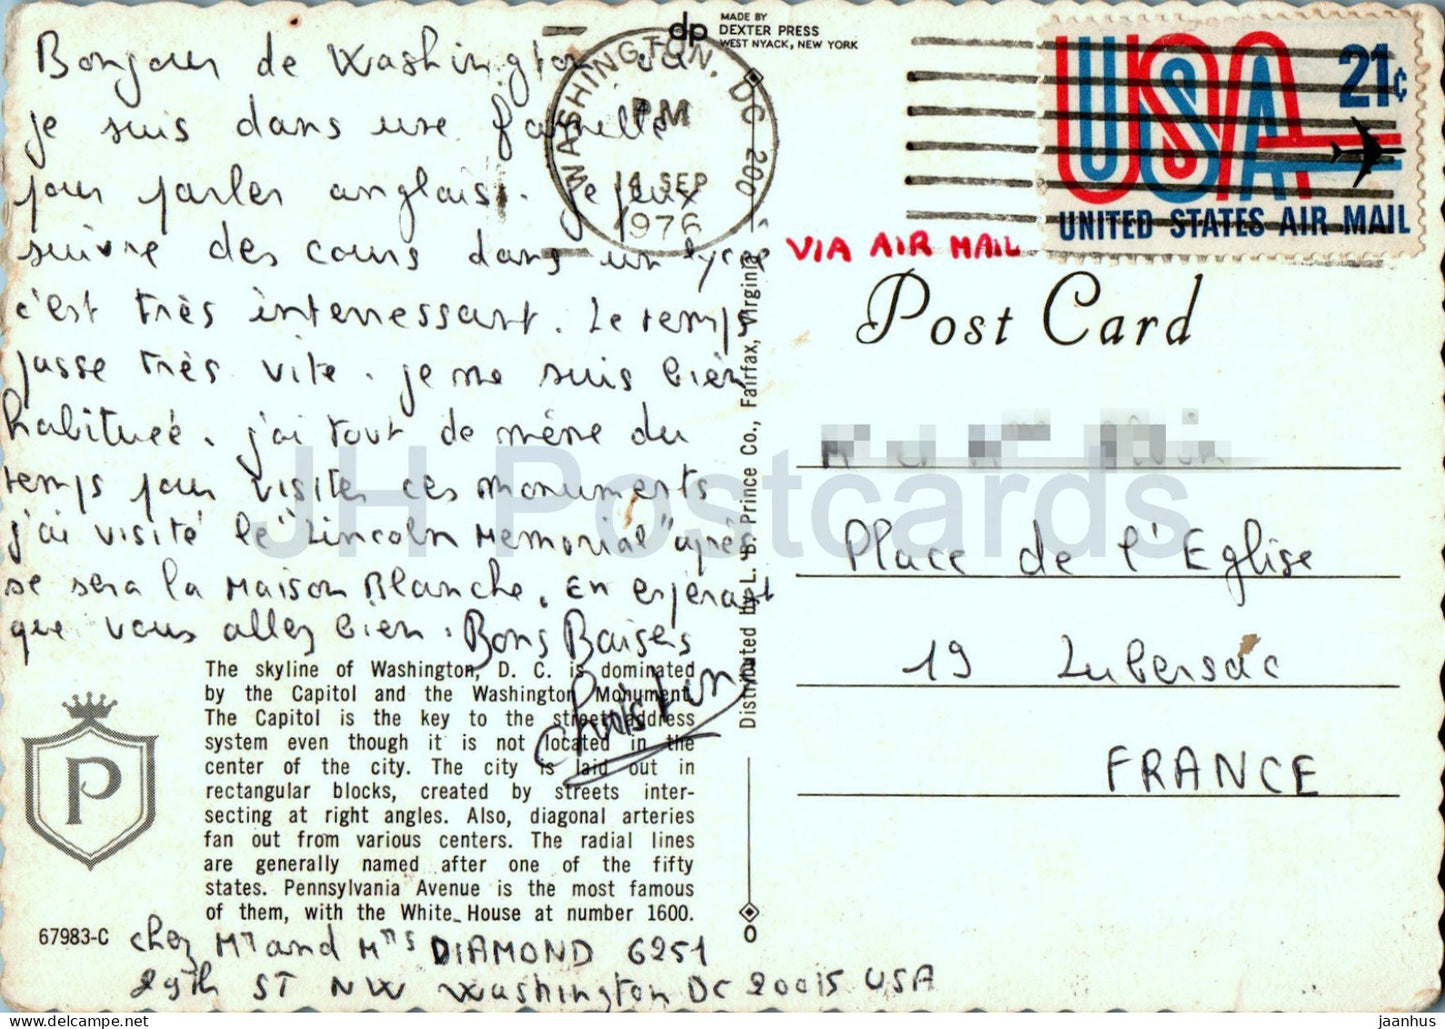 Bonjour de Washington où
je suis dans une famille
pour parler anglais. Je peux
suivre des cours dans un lycée
c'est très interressant. Le temps
passe très vite. je me suis bien
habituée. j'ai tout de même du
temps pour visiter ces monuments
j'ai visité le "Lincoln Memorial" après
se sera la Maison Blanche. En espérant
que vous allez bien. Bons Baisers
Christine
The skyline of Washington, D. C. is dominated
by the Capitol and the Washington Monument.
The Capitol is the key to the street address
system even though it is not located in the
center of the city. The city is laid out in
rectangular blocks, created by streets inter-
secting at right angles. Also, diagonal arteries
fan out from various centers. The radial lines
are generally named after one of the fifty
states. Pennsylvania Avenue is the most famous
of them, with the White House at number 1600.
P
67983-C
chez Mr and Mrs DIAMOND 6251
29th ST NW Washington DC 20015 USA
dp
MADE BY
DEXTER PRESS
WEST NYACK, NEW YORK
WASHINGTON, DC 200
PM
14 SEP
1976
Distributed by L. B. Prince Co., Fairfax, Virginia
O
USA
21c
UNITED STATES AIR MAIL
VIA AIR MAIL
Post Card
Place de l'Eglise
19 Lubersac
FRANCE
JH Postcards
https://jhpostcards.com
jaanhus